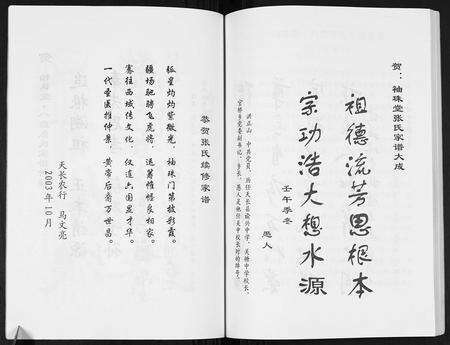 贺：袖珠堂张氏家谱大成
祖德流芳思根本
宗功浩大想水源
壬午季冬
愚人
恭贺张氏续修家谱
弧星灼灼紫微光，袖珠门第披彩霞。
疆场驰骋飞虎将，运筹帷幄良相家。
骞往西域传文化，仪连六国显才华。
一代圣医推仲景，黄帝后裔万世昌。
天长农行 马文亮
2003年10月